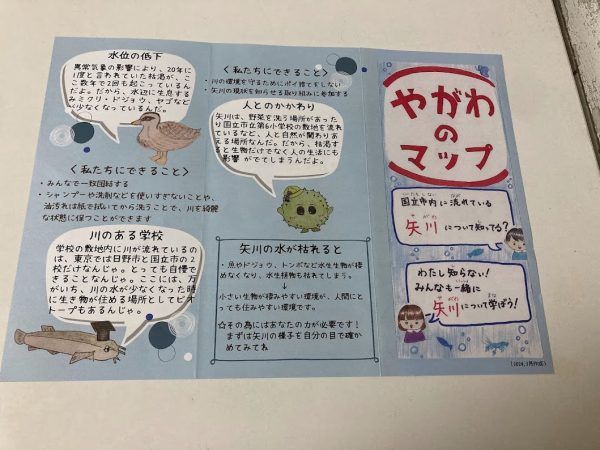 水位の低下
異常気象の影響により、20年に
1度と言われていた枯渇が、こ
こ数年で2回も起こっているん
だよ。だから、水辺に生息する
ミクリ・ドジョウ、ヤゴなど
が少なくなっているんだ。
＜私たちにできること＞
・みんなで一致団結する
・シャンプーや洗剤などを使いすぎないことや、
油汚れは紙で拭いてから洗うことで、川を綺麗
な状態に保つことができます
川のある学校
学校の敷地内に川が流れているの
は、東京では日野市と国立市の2
校だけなんじゃ。とっても自慢で
きることなんじゃ。ここには、万
がいち、川の水が少なくなった時
に生き物が住める場所としてビオ
トープもあるんじゃ。
＜私たちにできること＞
・川の環境を守るためにポイ捨てをしない
・矢川の現状を知らせる取り組みに参加する
人とのかかわり
矢川は、野菜を洗う場所があった
り国立市立第6小学校の敷地を流れ
ているなど、人と自然が関わりあ
える場所なんだ。だから、枯渇す
ると生物だけでなく人の生活にも
影響がでてしまうんだよ。
矢川の水が枯れると
・魚やドジョウ、トンボなど水生生物が棲
めなくなり、水生植物も枯れてしまう。
↓
小さい生物が棲みやすい環境が、人間にと
っても住みやすい環境です。
☆その為にはあなたの力が必要です！
まずは矢川の様子を自分の目で確か
めてみてね
やがわ
の
マップ
国立市内に流れている
やがわ
矢川について知ってる？
わたし知らない！
みんなも一緒に
やがわ
矢川について学ぼう！